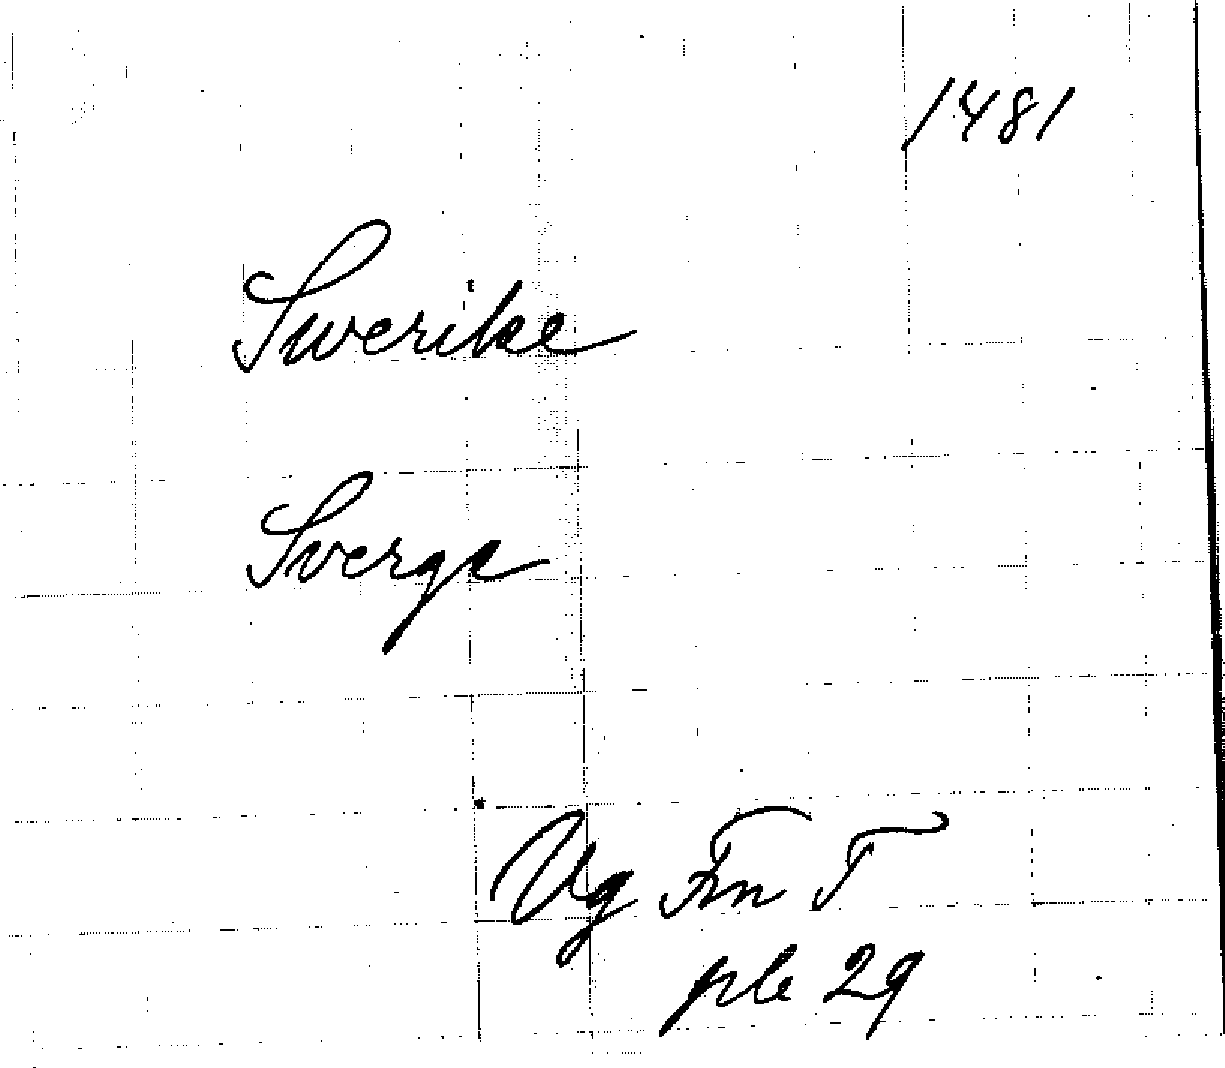 1481
Swerike
Sverge
Vg Fm T
ple 29